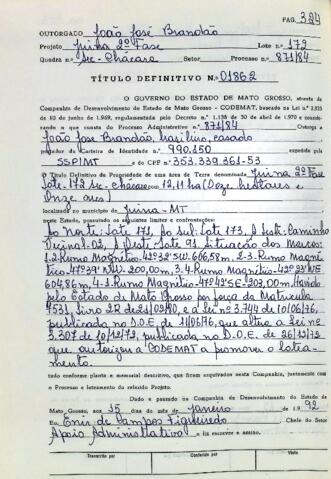 PAG. 324
OUTORGADO João José Brandão
Projeto Juina 2ª Fase Lote nº 172
Quadra nº Sc-Chácara Setor Processo nº 871/84
TÍTULO DEFINITIVO N.º 01862
O GOVERNO DO ESTADO DE MATO GROSSO, através da
Companhia de Desenvolvimento do Estado de Mato Grosso - CODEMAT, baseado na Lei nº 2.815
de 10 de junho de 1.969, regulamentada pelo Decreto n.º 1.138 de 30 de abril de 1970 e conside-
rando o que consta do Processo Administrativo n.º 871/84 Outorga a
João José Brandão, brasileiro, casado
portador da Carteira de Identidade n.º 990.150 expedida pela
SSP/MT e do CPF nº 353.339.361-53
O Título Definitivo de Propriedade de uma área de Terra denominada Juina 2º Fase
Lote 172 Sc-Chácara com 12,11 ha (Doze hectares e
Onze ares)
localizada no município de Juina-MT
neste Estado, possuindo os seguintes limites e confrontações:
Ao Norte: Lote 171, Ao Sul: Lote 173, A Leste: Caminho
Vicinal-02, A Oeste: Lote 91. Situação dos Marcos:
1-2 Rumo Magnético-42º32'SW 606,58m. 2-3 Rumo Magné
tico-47º39'NW 200,00m, 3-4 Rumo Magnético-42º23'NE
604,86m, 4-1 Rumo Magnético-47º42'SE-203,00m. Havido
pelo Estado de Mato Grosso por força da Matricula
4531, livro 2R de 21/02/80, e a lei nº 3.744 de 10/06/76,
publicada no D.O.E. de 11/06/76, que altera a lei nº
3.307 de 10/12/72, publicada no D.O.E. de 26/12/72
que autorizou a CODEMAT a promover o lotea-
mento.
tudo conforme planta e memorial descritivo, que ficam arquivados nesta Companhia, juntamente com
o Processo e loteamento do referido Projeto.
Dado e passado na Companhia de Desenvolvimento do Estado de
Mato Grosso, aos 15 dias do mês de Janeiro de 1.992
Eu, Enir de Campos Figueiredo Chefe do Setor
Apoio Administrativo o fiz escrever e assino.
Transcrito por Conferido por Visto